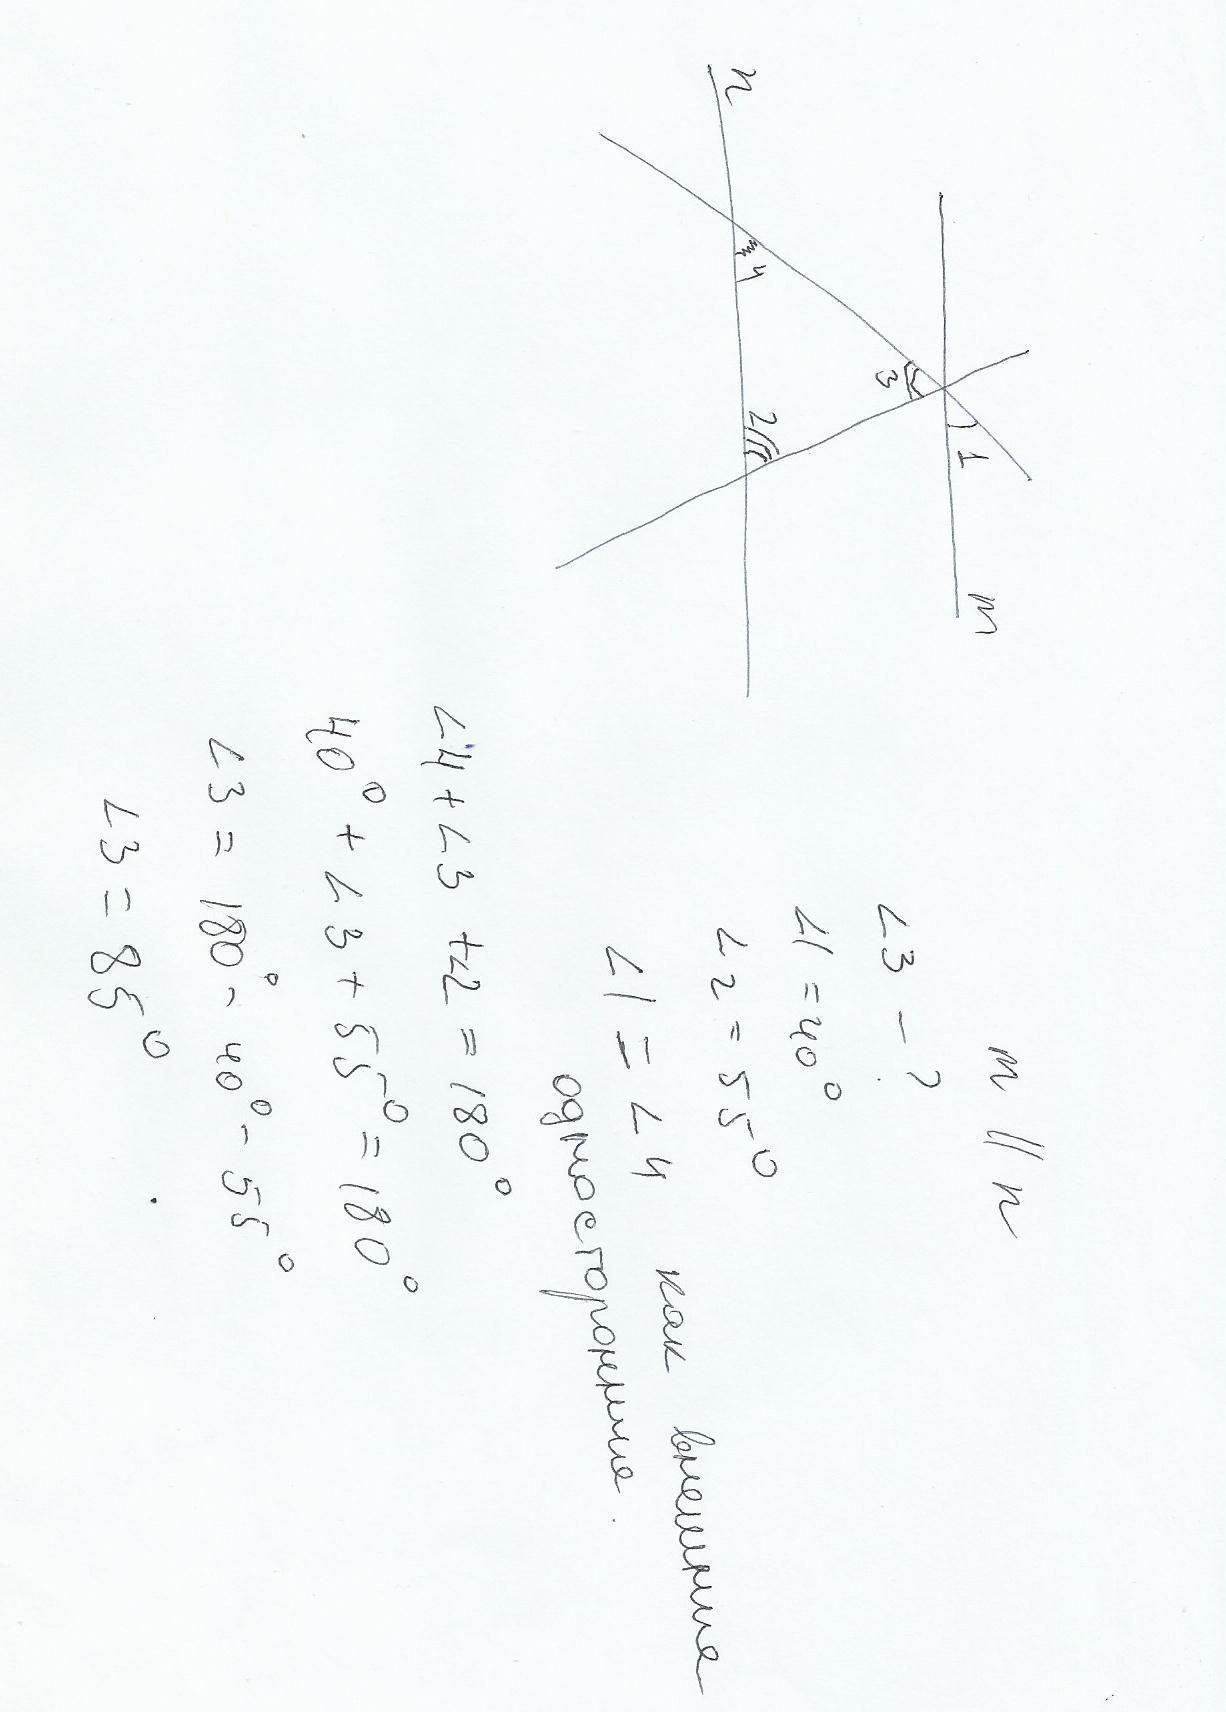 n
m
1
3
4
2
m || n
∠3 - ?
∠1 = 40°
∠2 = 55°
∠1 = ∠4 как внешние
односторонние.
∠4 + ∠3 + ∠2 = 180°
40° + ∠3 + 55° = 180°
∠3 = 180° - 40° - 55°
∠3 = 85°